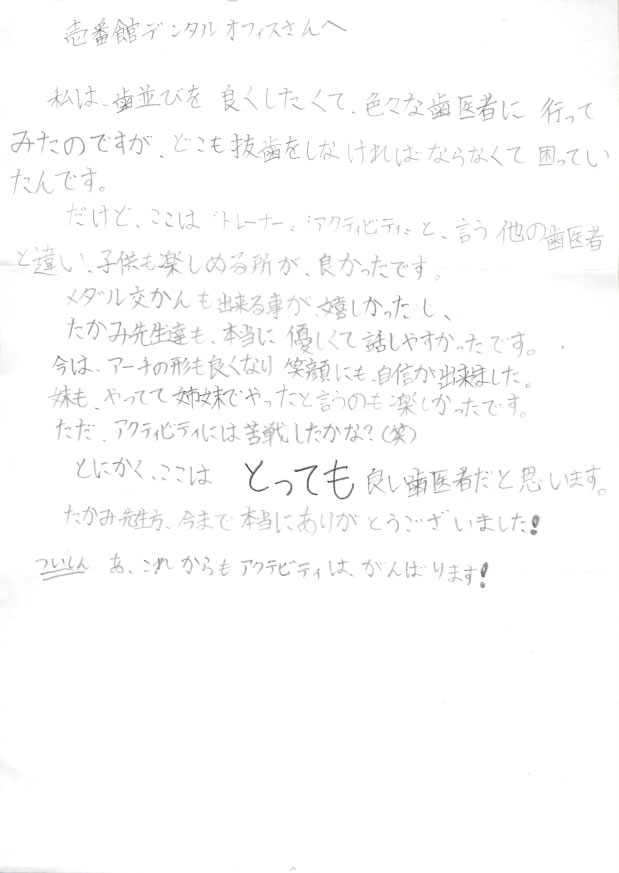 壱番館デンタルオフィスさんへ
私は、歯並びを良くしたくて、色々な歯医者に行って
みたのですが、どこも抜歯をしなければならなくて困ってい
たんです。
だけど、ここは"トレーナー"、"アクティビティ"と、言う他の歯医者
と違い、子供も楽しめる所が、良かったです。
メダル交かんも出来る事が、嬉しかったし、
たかみ先生達も、本当に優しくて話しやすかったです。
今は、アーチの形も良くなり笑顔にも、自信が出来ました。
妹も、やってて姉妹でやったと言うのも楽しかったです。
ただ、アクティビティには苦戦したかな?(笑)
とにかく、ここはとっても良い歯医者だと思います。
たかみ先生方、今まで本当にありがとうございました!
ついしん あ、これからもアクテビティは、がんばります!